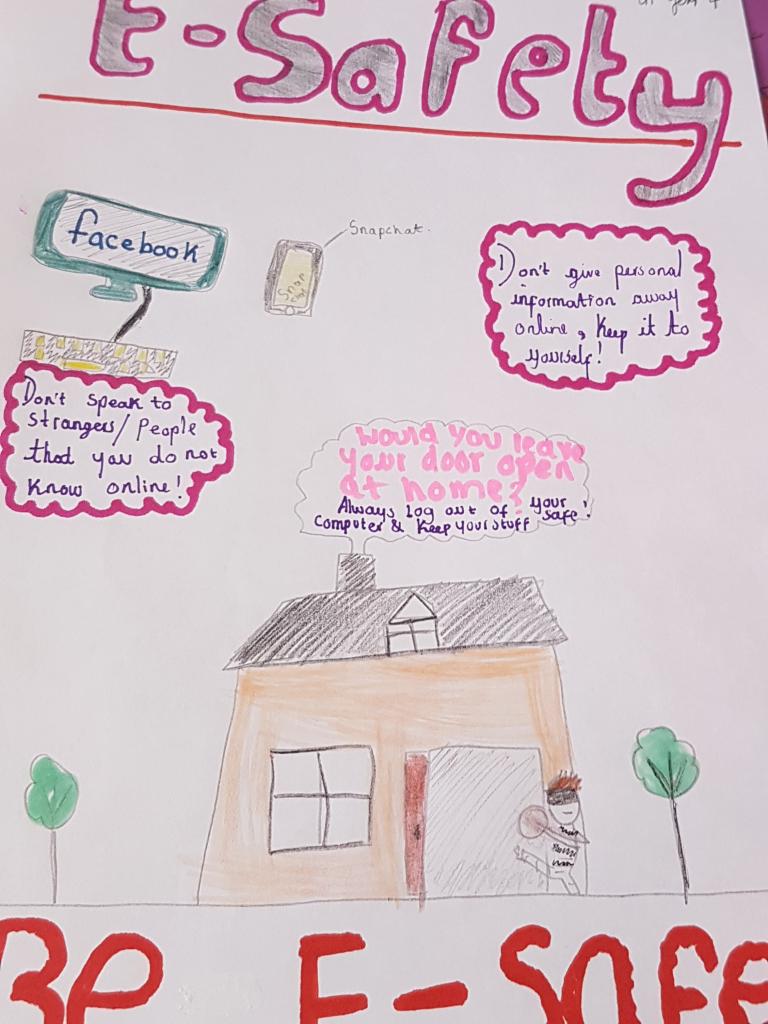 E-Safety
facebook
Snapchat.
Snap
Chat
Don't give personal
information away
online, Keep it to
yourself!
Don't speak to
strangers/People
that you do not
know online!
Would you leave
your door open
at home?
Always log out of your
Computer & Keep your stuff safe!
Be E-Safe